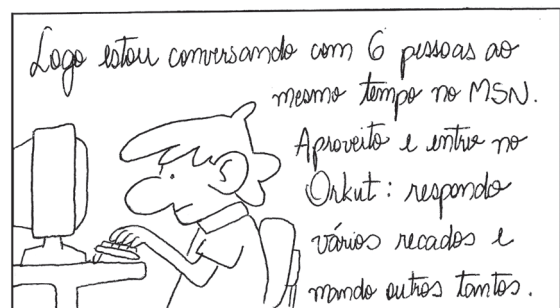 Logo estou conversando com 6 pessoas ao
mesmo tempo no MSN.
Aproveito e entro no
Orkut: respondo
vários recados e
mando outros tantos.